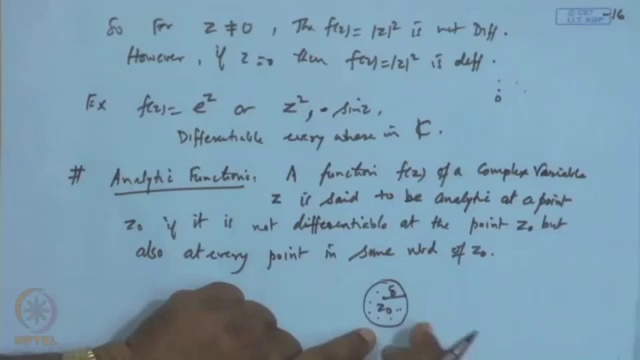 © CET
I.I.T. KGP
-16
So For z ≠ 0, The f(z) = |z|² is not Diff.
However, if z = 0 then f(z) = |z|² is diff.
0
Ex f(z) = e^z or z², sin z,
Differentiable every where in ℂ.
# Analytic Function: A function f(z) of a Complex Variable
z is said to be analytic at a point
z₀ if it is not differentiable at the point z₀ but
also at every point in some nbd of z₀.
δ
z₀
NPTEL